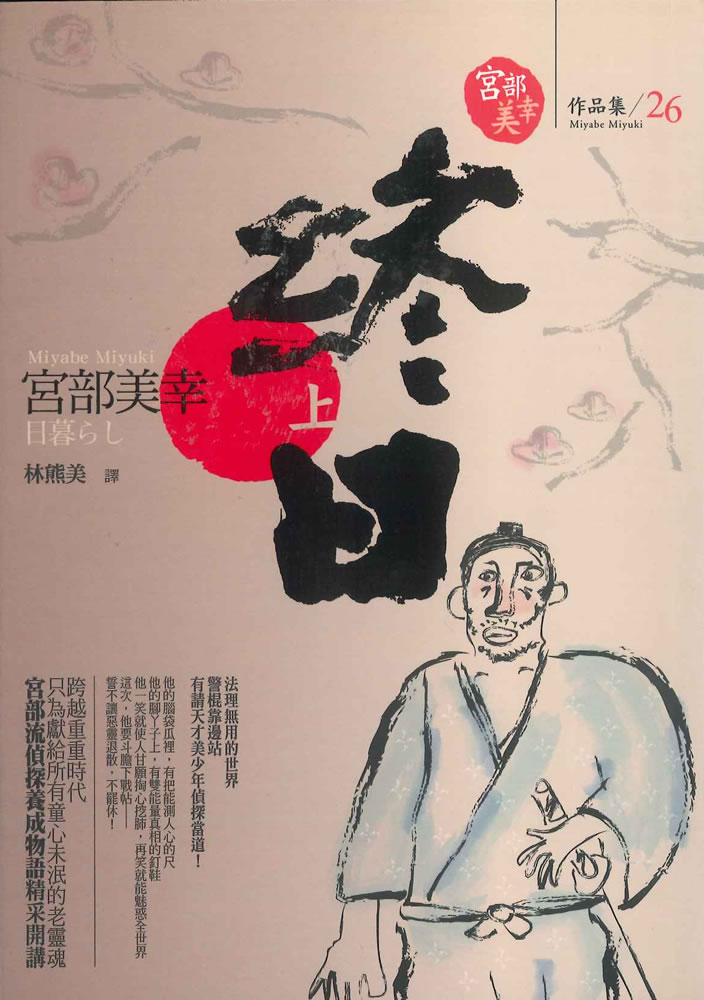 宮部
美幸
作品集/26
Miyabe Miyuki
終日
上
Miyabe Miyuki
宮部美幸
日暮らし
林熊美 譯
法理無用的世界
警棍靠邊站
有請天才美少年偵探當道！
他的腦袋瓜裡，有把能測人心的尺
他的腳丫子上，有雙能量真相的釘鞋
他一笑就使人甘願掏心挖肺，再笑就能魅惑全世界
這次，他要斗膽下戰帖——
誓不讓惡靈退散，不罷休！
跨越重重時代
只為獻給所有童心未泯的老靈魂
宮部流偵探養成物語精采開講